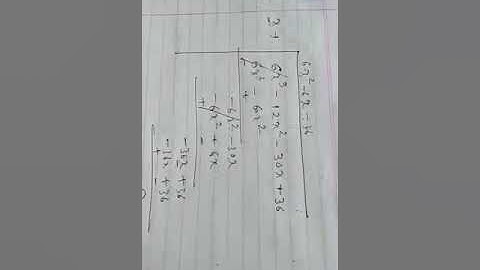 6x² - 6x - 36
x - 1 6x³ - 12x² - 30x + 36
6x³ - 6x²
- +
-6x² - 30x
-6x² + 6x
+ -
-36x + 36
-36x + 36
+ -
0